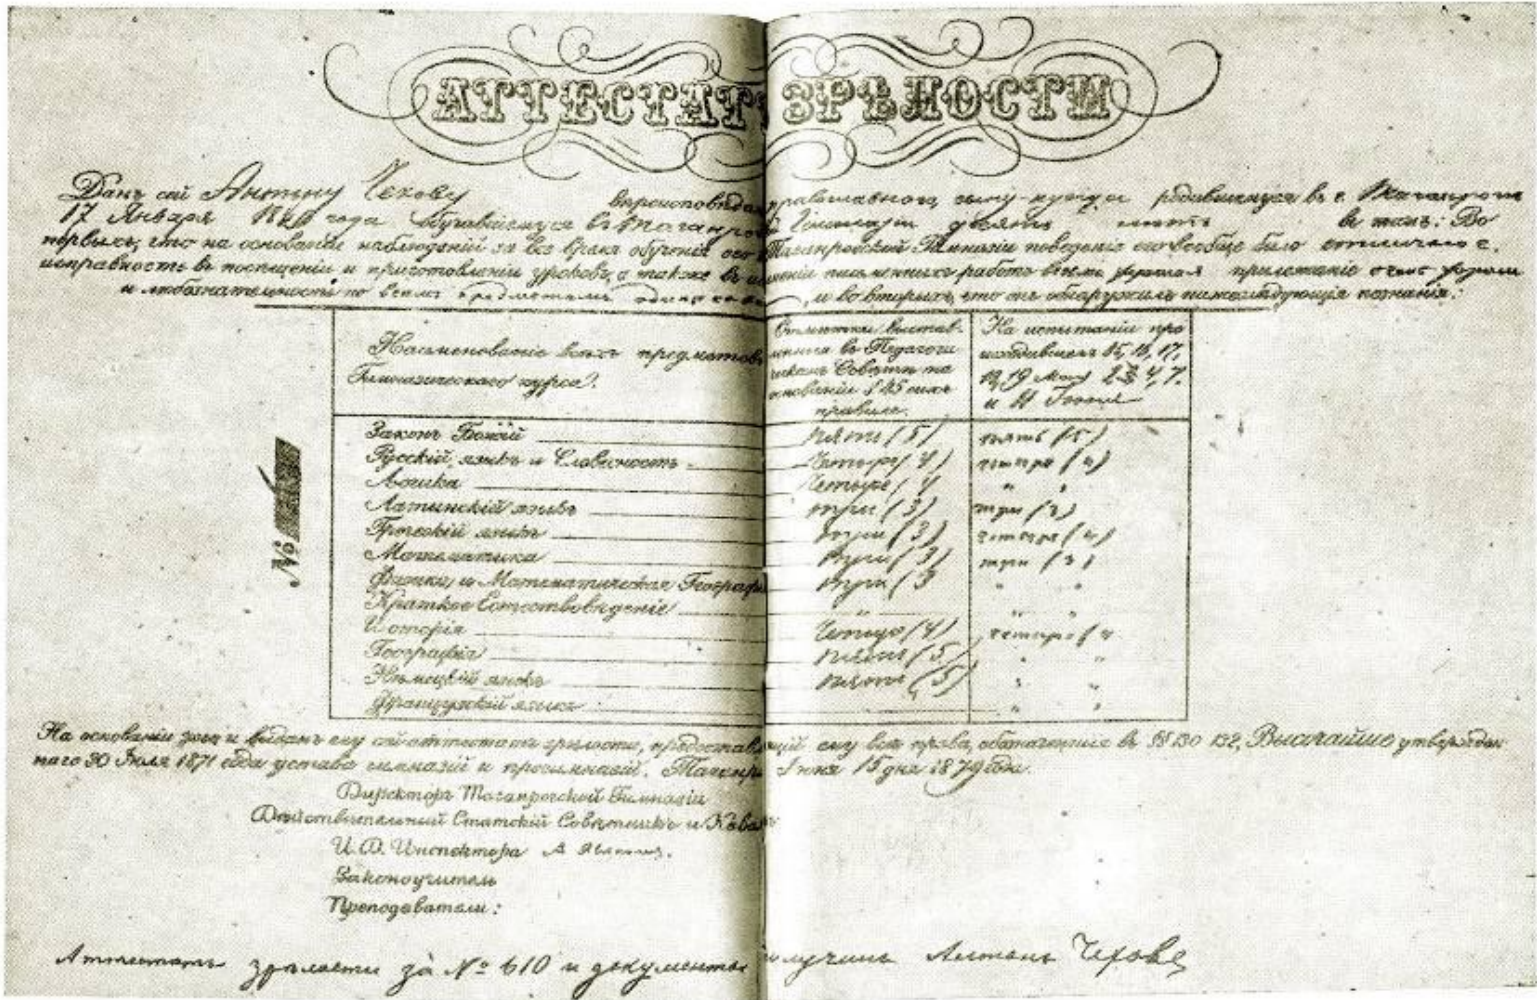 АТТЕСТАТЪ ЗРѢЛОСТИ
Данъ сей Антону Чехову вѣроисповѣданія православнаго, сыну купца родившемуся въ г. Таганрогѣ
17 Января 1860 года обучавшемуся въ Таганрогской Гимназіи десять лѣтъ въ томъ: Во
первыхъ, что на основаніи наблюденій за все время обученія его въ Таганрогской Гимназіи поведеніе его вообще было отличное.
исправность въ посѣщеніи и приготовленіи уроковъ, а также въ исполненіи письменныхъ работъ весьма хорошая прилежаніе очень хорошее
и любознательность по всемъ предметамъ одинаковая, и во вторыхъ, что онъ обнаружилъ нижеслѣдующія познанія:
Наименованіе всѣхъ предметовъ
Гимназическаго курса.
Отмѣтки выстав-
ленныя въ Педагоги
ческомъ Совѣтѣ на
основаніи § 45 сихъ
правилъ.
На испытаніи про
исходившемъ 15, 16, 17,
19 Мая 2, 3, 4, 7.
и 11 Іюня
Законъ Божій пять (5) пять (5)
Русскій языкъ и Словесность четыре (4) четыре (4)
Логика Четыре (4 " "
Латинскій языкъ три (3) три (3)
Греческій языкъ три (3) четыре (4)
Математика три (3) три (3)
Физика и Математическая Географія три (3 " "
Краткое Естествовѣдѣніе " " "
Исторія Четыре (4) четыре (4
Географія пять (5) " "
Нѣмецкій языкъ пять (5) " "
Французскій языкъ " "
На основаніи чего и выданъ ему сей аттестатъ зрѣлости, предоставляющій ему все права, обозначенныя въ §§ 130 132, Высочайше утвержден
наго 30 Іюля 1871 года устава гимназій и прогимназій. Таганрогъ Іюня 15 дня 1879 года.
Директоръ Таганрогской Гимназіи
Дѣйствительный Статскій Совѣтникъ и Кавалеръ
И. Д. Инспектора
Законоучитель
Преподаватели:
№
Аттестатъ зрѣлости за № 610 и документы получилъ Антонъ Чеховъ